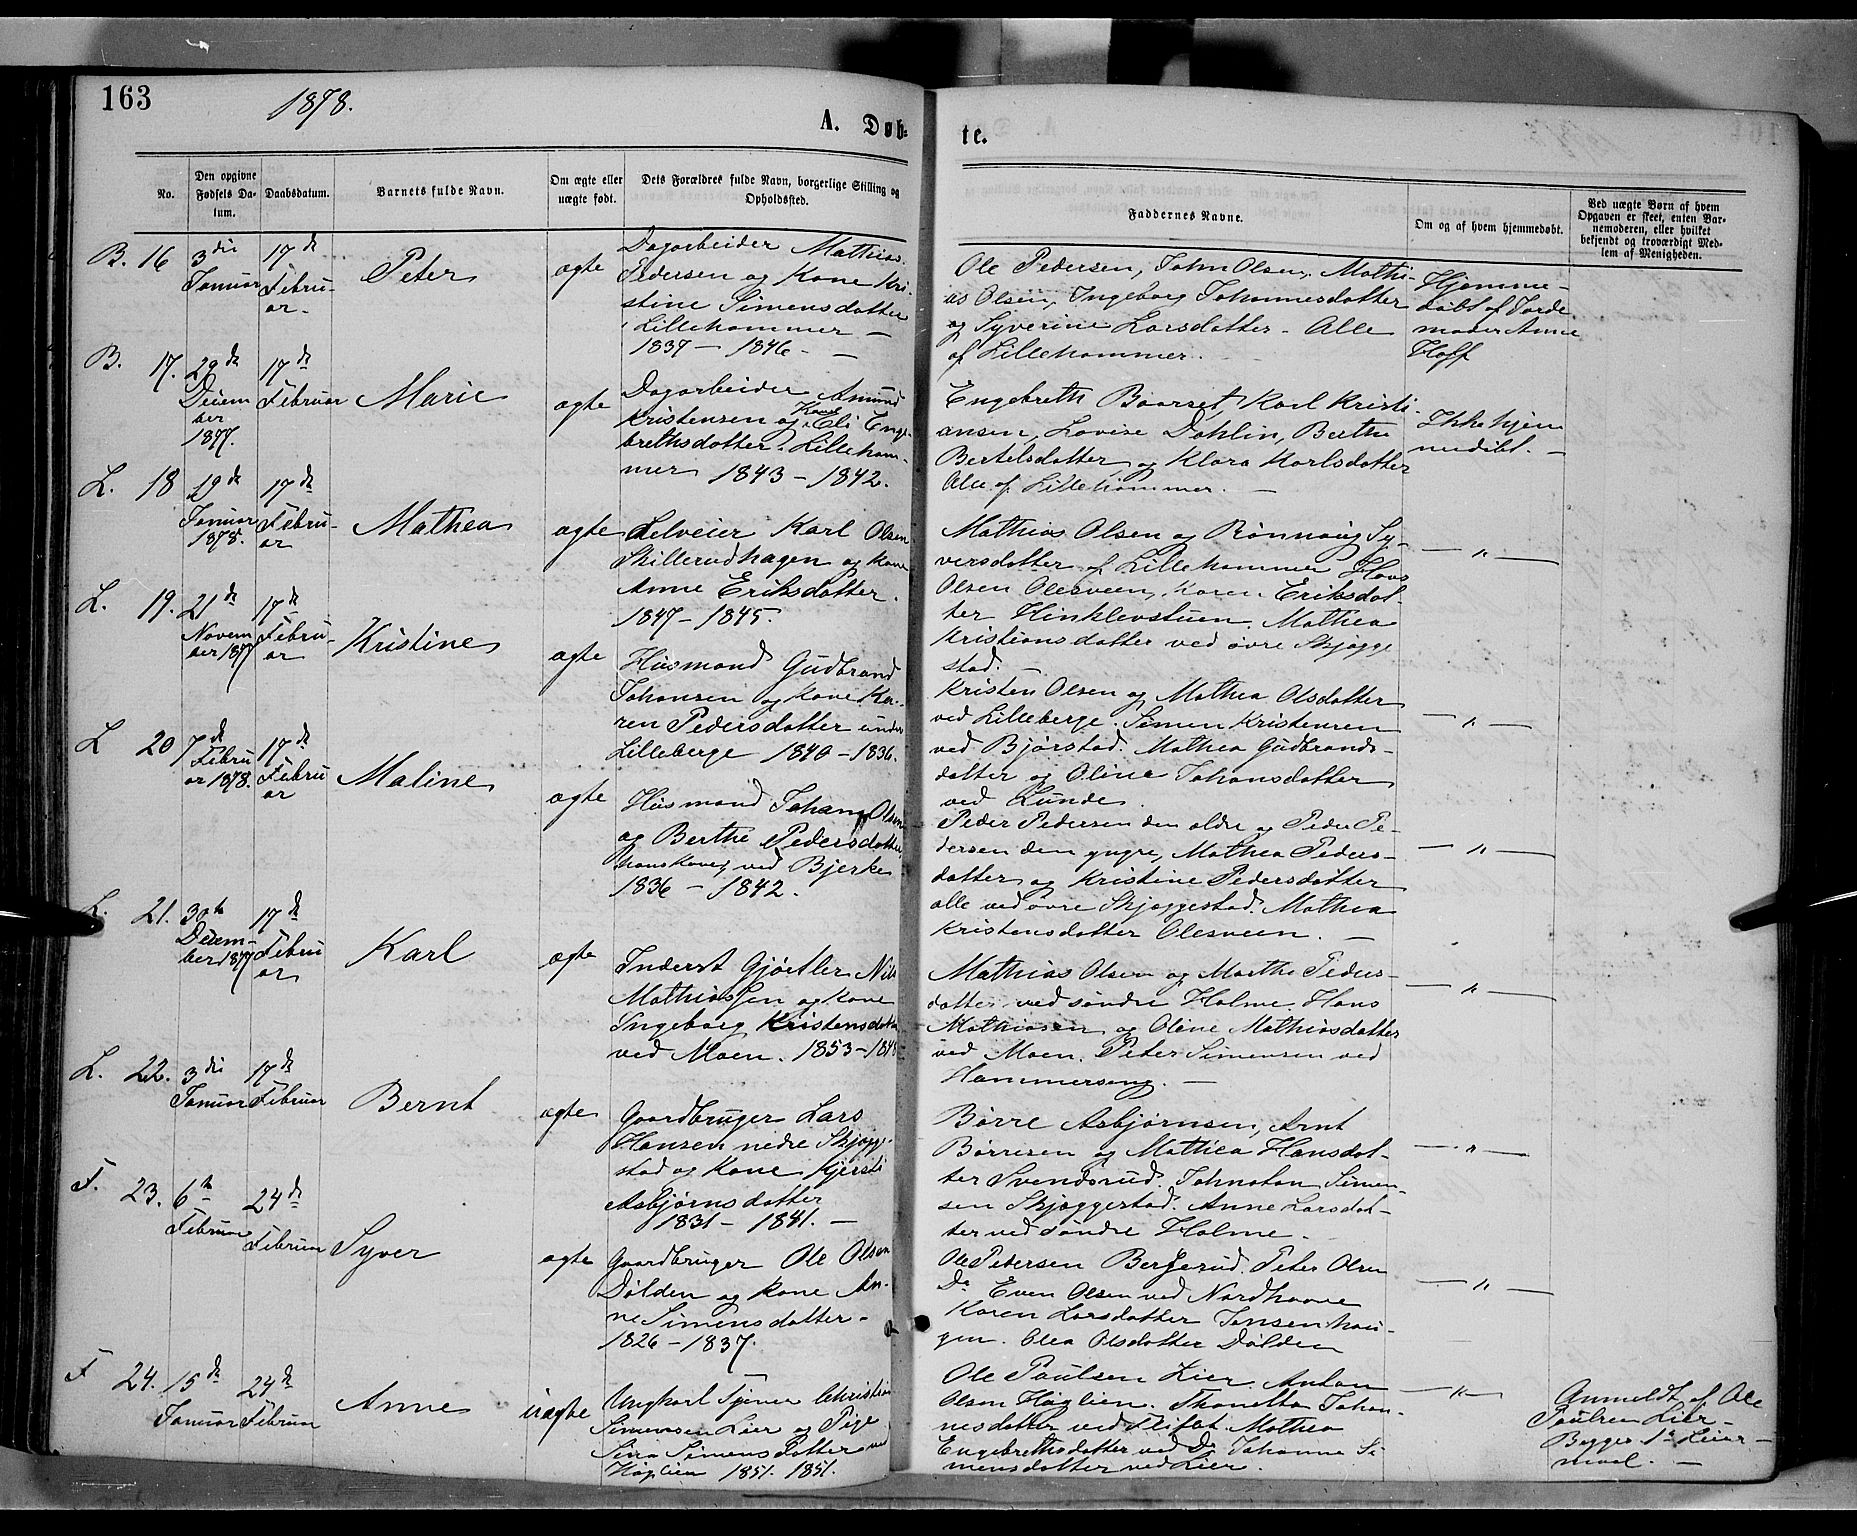 163
1878.
A. Døb-
te.
No.
Den opgivne
Fødsels Da-
tum.
Daabsdatum.
Barnets fulde Navn.
Om ægte eller
uægte født.
Dets Forældres fulde Navn, borgerlige Stilling og
Opholdssted.
Faddernes Navne.
Om og af hvem hjemmedøbt.
Ved uægte Børn af hvem
Opgaven er skeet, enten Bar-
nemoderen, eller hvilket
bekjendt og troværdigt Med-
lem af Menigheden.
B. 16
3die
Januar
17de
Febru-
ar.
Peter
ægte
Dagarbeider Mathias
Pedersen og Kone Kri-
stine Simensdatter
Lillehammer —
1837 — 1846. —
Ole Pedersen, John Olsen, Mathi-
as Olsen, Ingeborg Johannesdatter
og Syverine Larsdatter. Alle
af Lillehammer.
Hjemme-
døbt af Jorde
moder Anne
Hoff
B. 17.
29de
Decem
ber
1877.
17de
Februar
Marie
ægte
Dagarbeider Amund
Kristensen og Kone Eli Enge
brethsdatter. Lilleham-
mer 1843 — 1842.
Engebreth Baarset, Karl Kristi-
ansen, Lovise Dahlin, Berthe
Bertelsdatter og Klara Karlsdatter
Alle af Lillehammer. —
Ikke hjem
medøbt. —
L. 18
19de
Januar
1878.
17de
Febru-
ar
Mathea
ægte
Selveier Karl Olsen
Skillerudhagen og Kone
Anne Eriksdatter.
1847 — 1845.
Mathias Olsen og Rønnaug Sy-
versdatter af Lillehammer Hans
Olsen Olesveen, Karen Eriksdat-
ter Hinklevstuen. Mathea
Kristiansdatter ved øvre Skjøgge
stad. —
— " —
L. 19.
21de
Novem
ber 1877
17de
Febru-
ar
Kristine
ægte
Husmand Gudbrand
Johansen og Kone Ka-
ren Pedersdatter under
Lilleberge 1840 — 1836.
Kristen Olsen og Mathea Olsdatter
ved Lilleberge. Simen Kristensen
ved Bjørstad. Mathea Gudbrands-
datter og Oline Johansdatter
ved Lunde.
— " —
L 20
7de
Febru
ar 1878.
17de
Febru
ar
Maline
ægte
Husmand Johan Olsen
og Berthe Pedersdatter,
hans Kone, ved Bjerke
1836 — 1842.
Peder Pedersen den ældre og Peder Pe-
dersen den yngre, Mathea Peders-
datter og Kristine Pedersdatter
alle ved øvre Skjøggestad. Mathea
Kristensdatter Olesveen. —
— " —
L. 21.
30te
Decem-
ber 1877
17de
Febru
ar
Karl
ægte
Inderst Gjørtler Nils
Mathiassen og Kone
Ingeborg Kristensdatter
ved Moen. 1853 —
Mathias Olsen og Marthe Peders-
datter ved søndre Holme. Hans
Mathiasen og Oline Mathiasdatter
ved Moen. Peter Simensen ved
Hammerseng. —
— " —
L. 22.
3die
Januar
17de
Februar
Bernt
ægte
Gaardbruger Lars
Hansen nedre Skjøgge-
stad og Kone Kjersti
Asbjørnsdatter
1831 — 1841. —
Børre Asbjørnsen, Arnt
Børresen og Mathea Hansdat-
ter Svendsrud. Johnatan Simen-
sen Skjøggestad. Anne Larsdat-
ter ved søndre Holme. —
— " —
F. 23.
6te
Februar
24de
Februar
Syver
ægte
Gaardbruger Ole Olsen
Dølden og Kone An-
ne Simensdatter.
1826 — 1837.
Ole Pedersen Bergerud. Peter Olsen
Do Even Olsen ved Nordhaave
Karen Larsdatter Jansenhau-
gen. Olea Olsdatter Dølden
— " —
F 24.
15de
Januar
24de
Februar
Anne
uægte
Ungkarl Tjener Christian
Simensen Lier og Pige
Sina Simensdatter ved
Høglien 1851. 1851.
Ole Paulsen Lier. Anton
Olsen Høglien. Thonetta Johan-
nesdatter ved Mathea
Engebrethsdatter ved Do Johanne Si
mensdatter ved Lier.
— " —
Anmeldt af Ole
Paulsen Lier —
Begges 1ste Leier-
maal. —